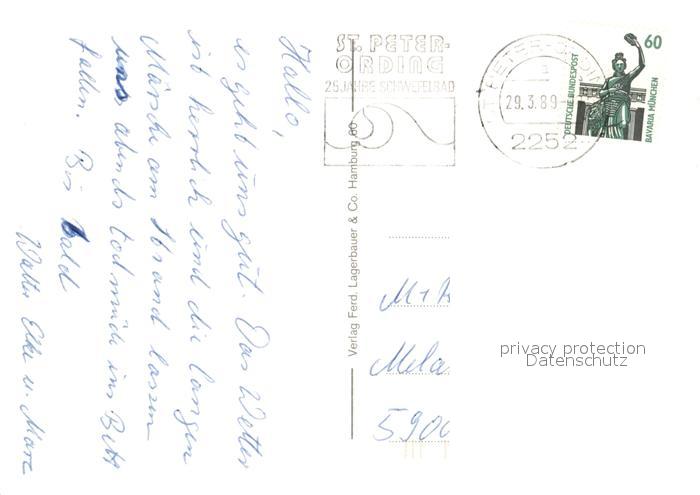 Hallo,
es geht uns gut. Das Wetter
ist herrlich und die langen
Märsche am Strand lassen
uns abends todmüde ins Bett
fallen. Bis bald
Walter Elke u. Marc
ST. PETER-
ORDING
25 JAHRE SCHWEFELBAD
ST. PETER-ORDING
a
29.3.89
2252
60
DEUTSCHE BUNDESPOST
BAVARIA MÜNCHEN
Verlag Ferd. Lagerbauer & Co. Hamburg 60
M+
Mela
5900
privacy protection
Datenschutz